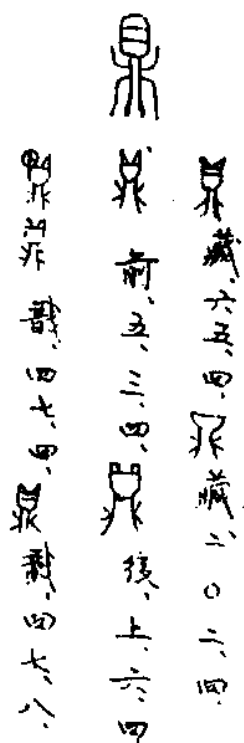 鼎
鼎藏、六五、四、鼎藏二、〇二、四
鼎前、五、三、四、鼎後、上、六、四
戩、四七、四、鼎戩、四七、八、